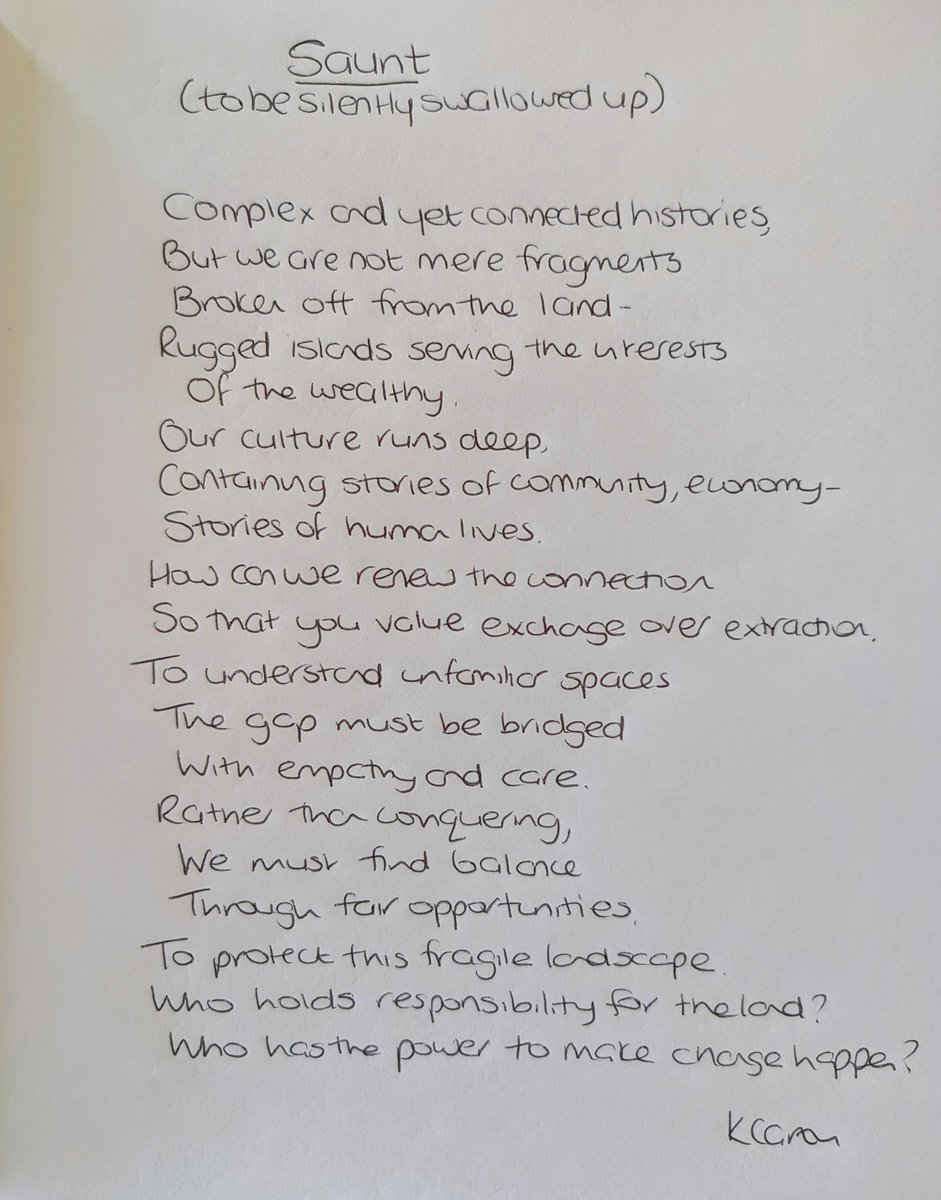 Saunt
(to be silently swallowed up)
Complex and yet connected histories,
But we are not mere fragments
Broken off from the land-
Rugged islands serving the interests
Of the wealthy.
Our culture runs deep,
Containing stories of community, economy-
Stories of human lives.
How can we renew the connection
So that you value exchange over extraction.
To understand unfamiliar spaces
The gap must be bridged
With empathy and care.
Rather than conquering,
We must find balance
Through fair opportunities.
To protect this fragile landscape.
Who holds responsibility for the land?
Who has the power to make change happen?